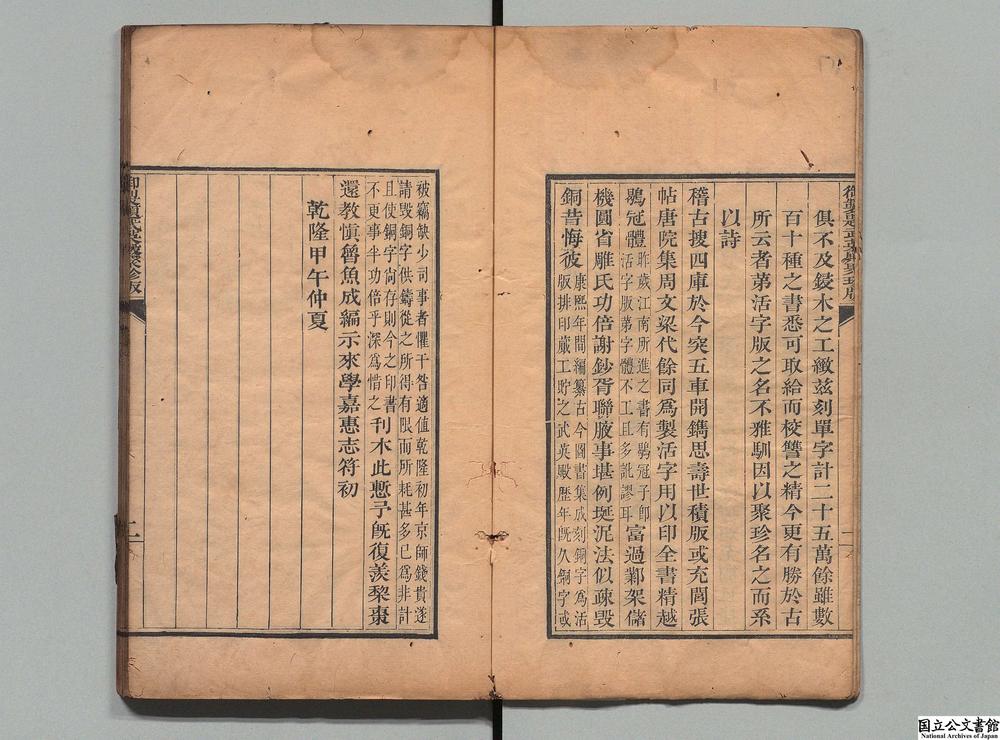 俱不及鋟木之工緻茲刻單字計二十五萬餘雖數
百十種之書悉可取給而校讐之精今更有勝於古
所云者第活字版之名不雅馴因以聚珍名之而系
以詩
稽古搜四庫於今突五車開鐫思壽世積版或充閭張
帖唐院集周文梁代餘同爲製活字用以印全書精越
鶡冠體昨歲江南所進之書有鶡冠子即
活字版第字體不工且多訛謬耳富過鄴架儲
機圓省雕氏功倍謝鈔胥聯腋事堪例埏泥法似疎毀
銅昔悔彼康熙年間編纂古今圖書集成刻銅字爲活
版排印蕆工貯之武英殿歷年旣久銅字或
被竊缺少司事者懼干咎適值乾隆初年京師錢貴遂
請毀銅字供鑄從之所得有限而所耗甚多已爲非計
且使銅字尚存則今之印書
不更事半功倍乎深爲惜之刊木此慙予旣復羨梨棗
還教慎魯魚成編示來學嘉惠志符初
乾隆甲午仲夏
二
国立公文書館
National Archives of Japan